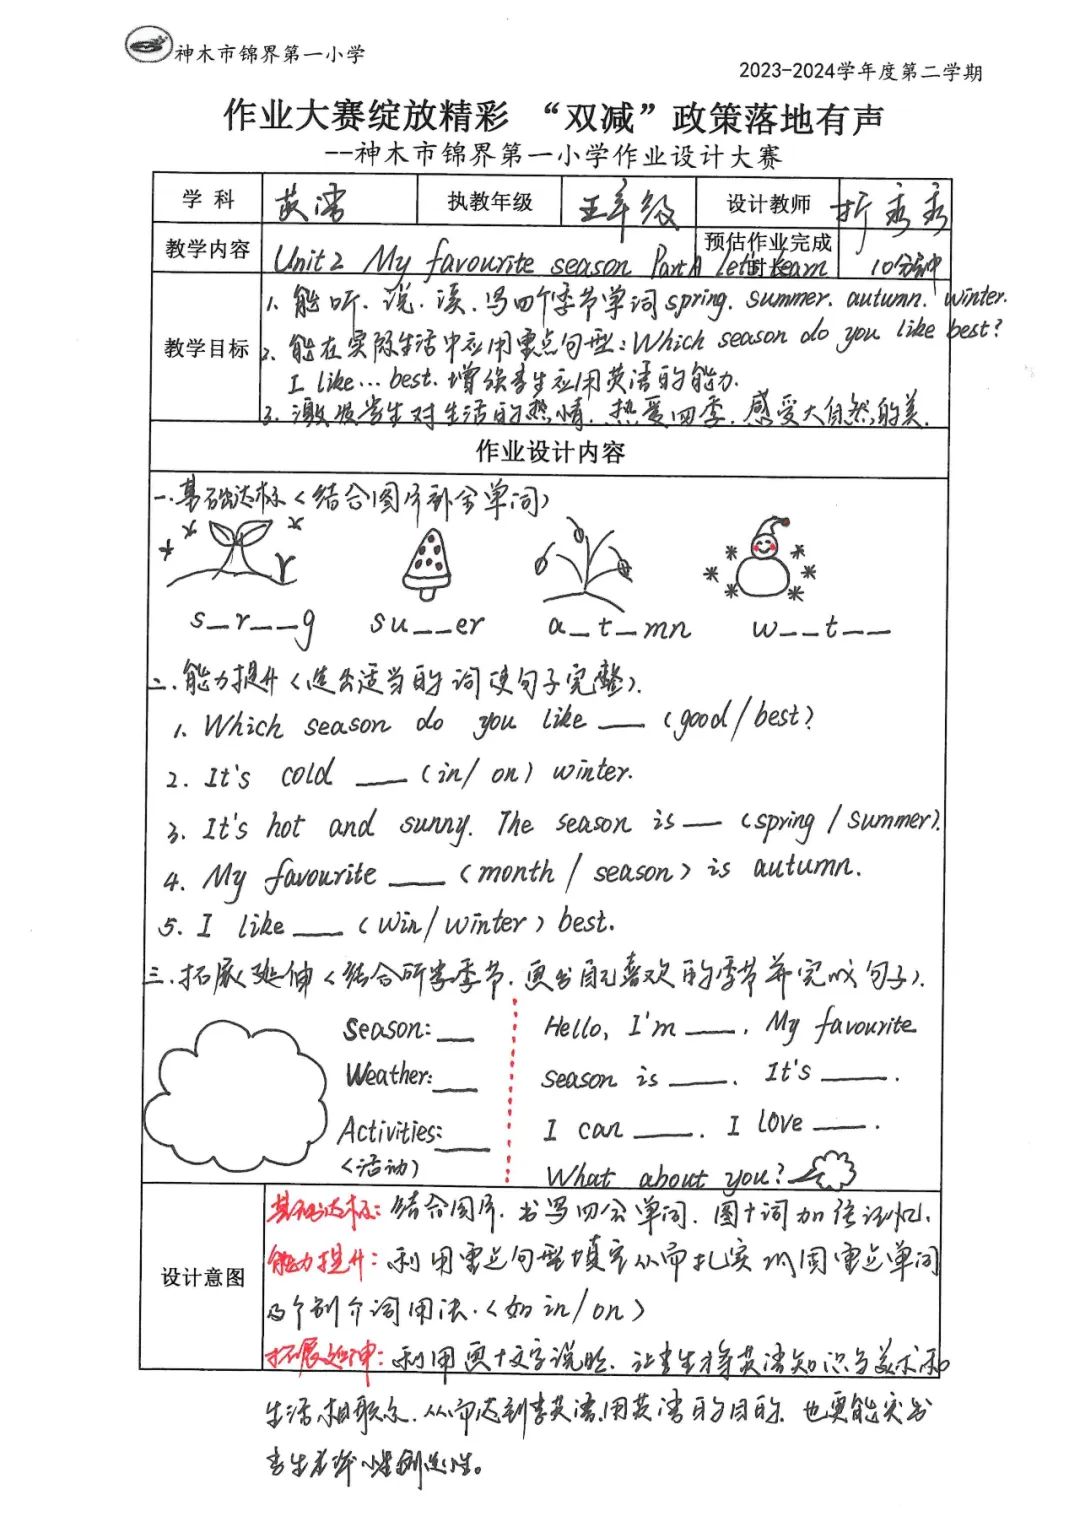 神木市锦界第一小学
2023-2024学年度第二学期
作业大赛绽放精彩 “双减”政策落地有声
--神木市锦界第一小学作业设计大赛
学科 英语 执教年级 五年级 设计教师 折秀秀
教学内容 Unit2 My favourite season PartA let's learn 预估作业完成时长 10分钟
教学目标
1. 能听、说、读、写四个季节单词spring. summer. autumn. winter.
2. 能在实际生活中应用重点句型：Which season do you like best?
I like... best. 增强学生应用英语的能力.
3. 激发学生对生活的热情. 热爱四季. 感受大自然的美.
作业设计内容
一.基础达标（结合图片补全单词）
s_r__g su__er a_t_mn w__t__
二.能力提升（选出适当的词使句子完整）.
1. Which season do you like ___ (good/best?
2. It's cold ___ (in/ on) winter.
3. It's hot and sunny. The season is ___ (spring / summer).
4. My favourite ___ (month / season) is autumn.
5. I like ___ (win/winter) best.
三.拓展延伸（结合所学季节.画出自己喜欢的季节并完成句子).
Season: ___
Weather: ___
Activities: ___
（活动）
Hello, I'm ___. My favourite
season is ___. It's ___.
I can ___. I love ___.
What about you?
设计意图
基础达标：结合图片.书写四会单词.图+词加强记忆.
能力提升：利用重点句型填空从而扎实巩固重点单词
及个别介词用法.（如in/on）
拓展延伸：利用画+文字说脸.让学生将英语知识与美术和
生活相联系.从而达到学英语.用英语的目的.也更能突出
学生本来性创造性。